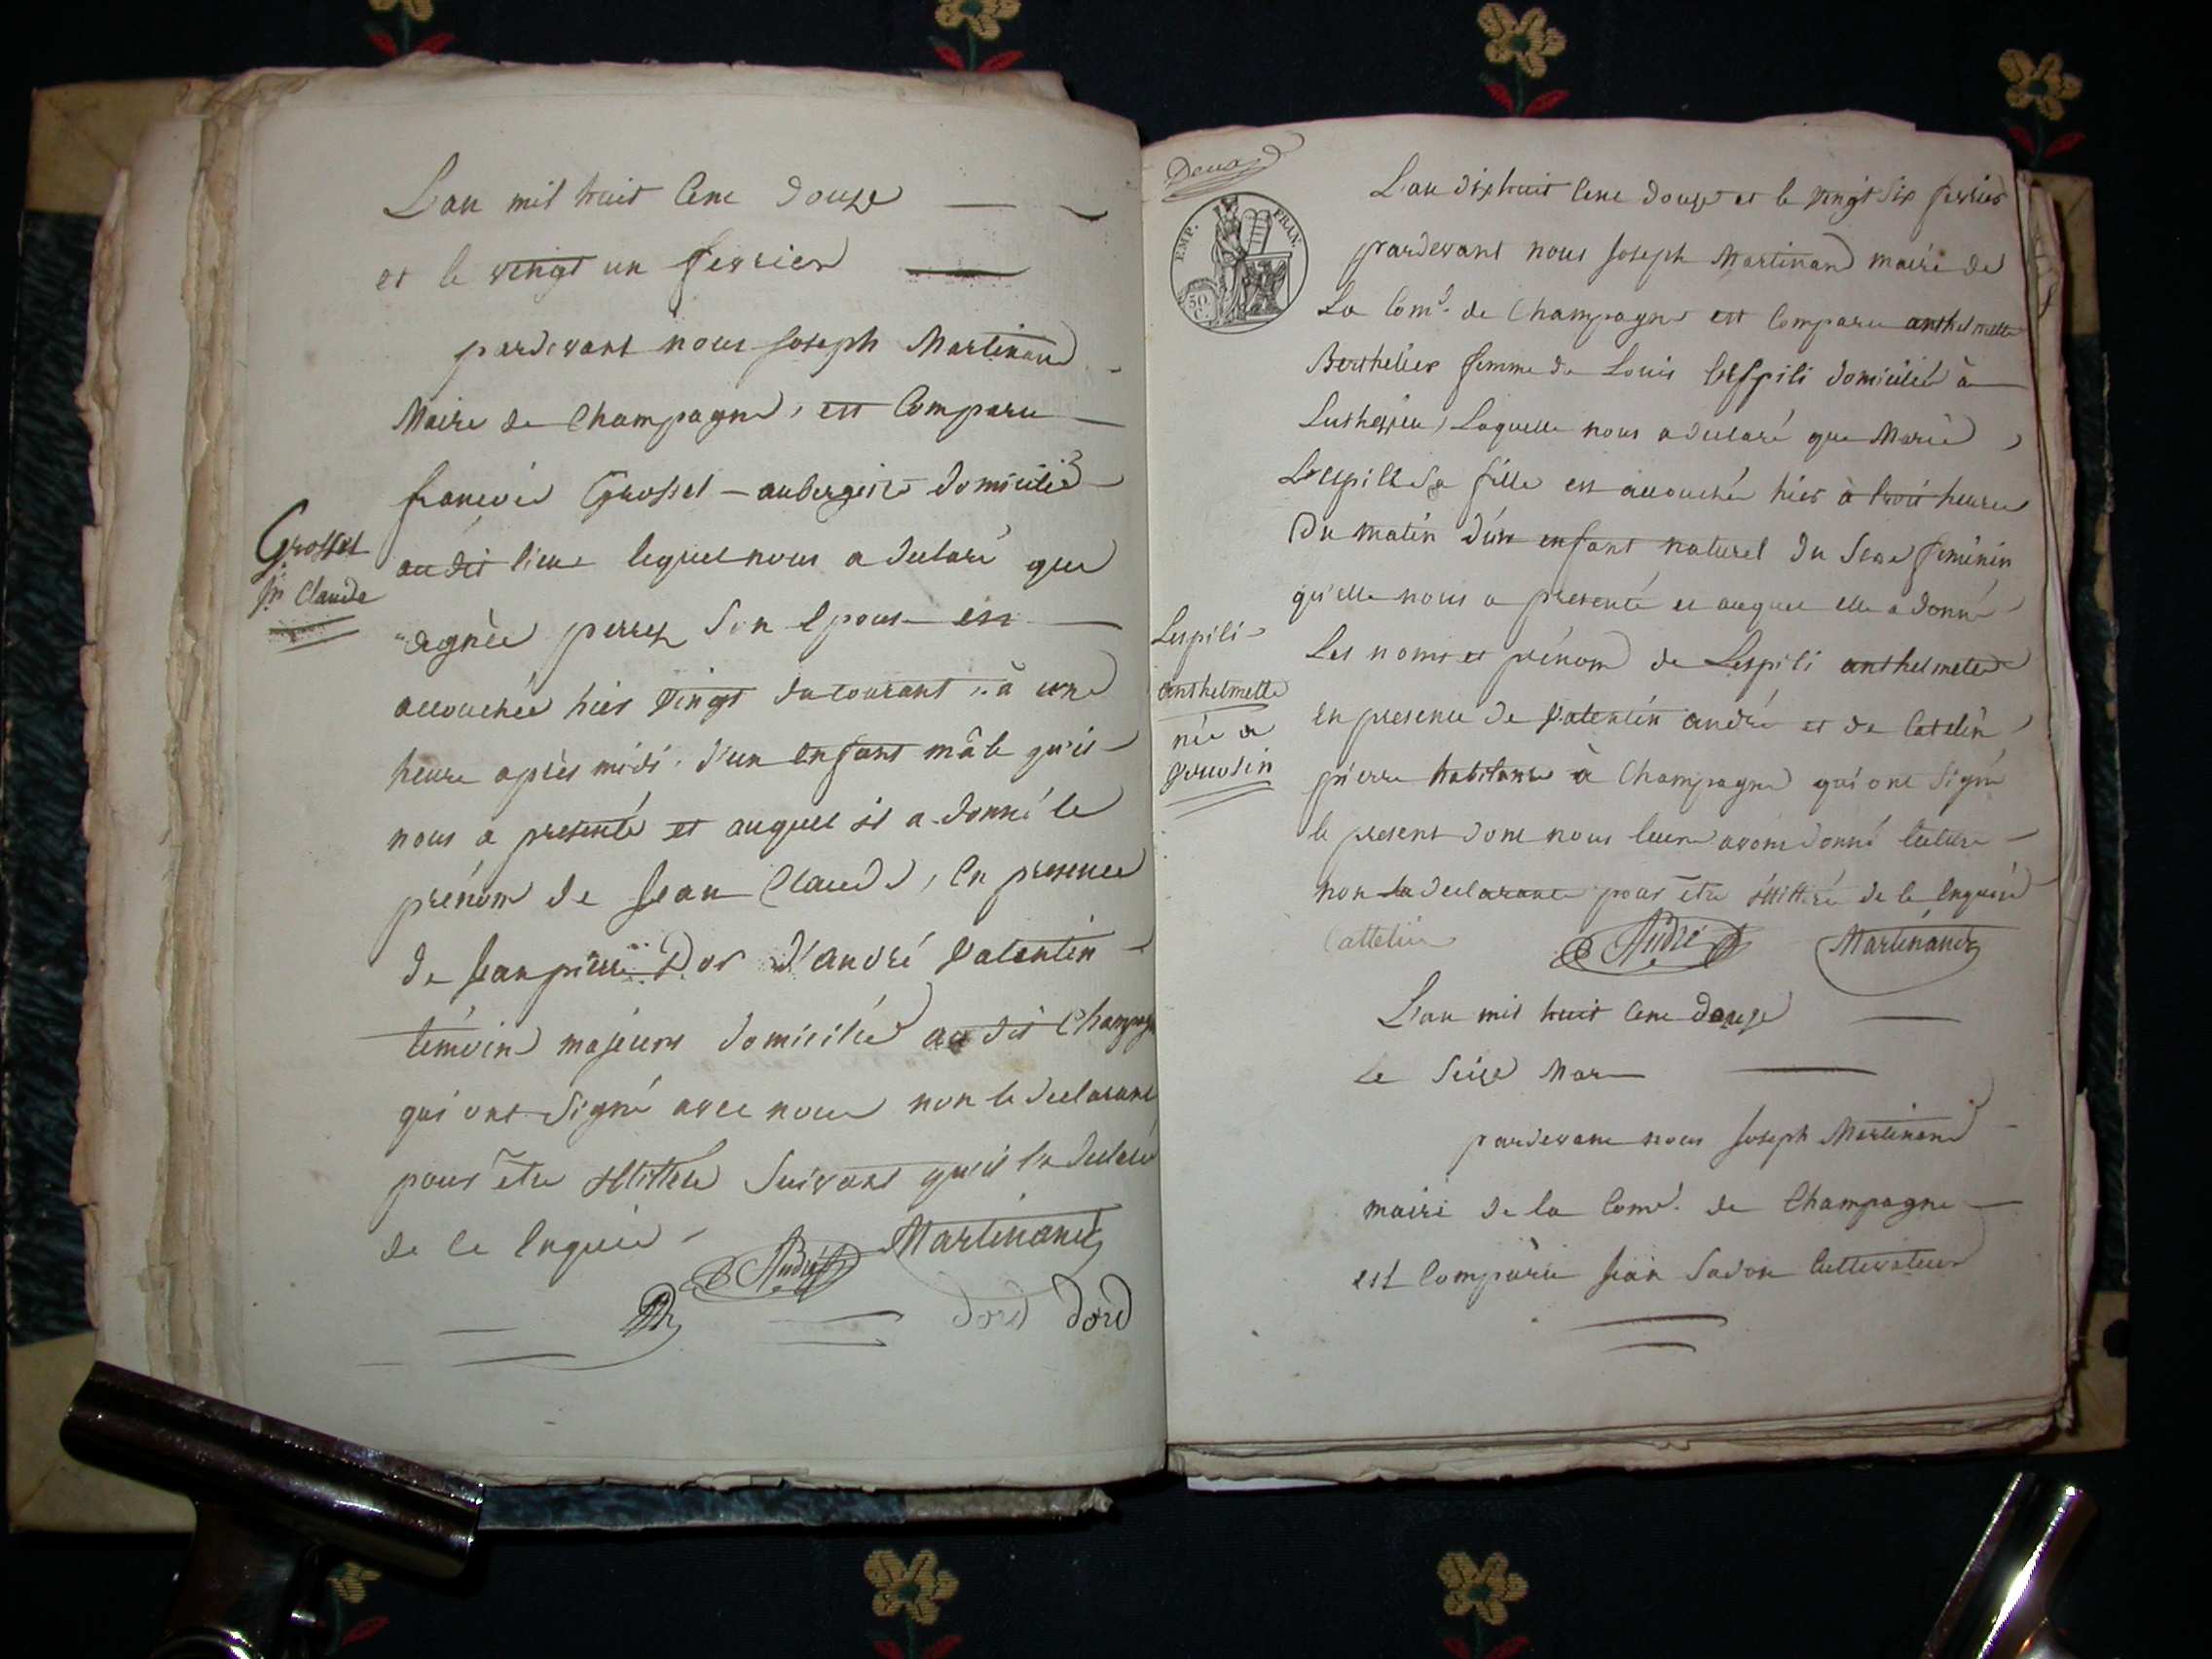 L'an mil huit Cent douze
et le vingt un fevrier
pardevant nous joseph Martinand
Maire de Champagne, est Comparu
francois Grosset aubergiste domicilié
au dit lieu lequel nous a declaré que
Grosset
jn Claude
agnès perret son epouse est
accouchée hier vingt du courant, à une
heure après midi. d'un enfant mâle qu'il
nous a presenté et auquel il a donné le
prénom de jean Claude, en presence
de jean pierre Dor d'andré Valentin
témoins majeurs domiciliés au dit Champagne
qui ont signé avec nous non le declarant
pour être illitteré suivant qu'il l'a declaré
de ce enquis
André Martinand
dord dord
EMP. FRAN.
50.
C.
L'an dix huit Cent douze et le vingt six fevrier
pardevant nous joseph Martinand maire de
La Com.e de Champagne est Comparu anthelmette
Berthelier femme de Louis Lespili domicilié à
Luthezieu, Laquelle nous a declaré que Marie
Lespili sa fille est accouchée hier à trois heures
Du matin d'un enfant naturel du sexe feminin
qu'elle nous a presenté et auquel elle a donné
Lespili
anthelmette
née a
Les noms et prénom de Lespili anthelmette
en presence de Valentin andré et de Catelin
pierre habitants à Champagne qui ont signé
le present dont nous leur avons donné lecture
non la declarante pour être illitterée de ce enquise
Cattelin André Martinand
L'an mil huit Cent douze
Le seize Mars
pardevant nous joseph Martinand
maire de la Com.e de Champagne
est Comparu jean Cultivateur